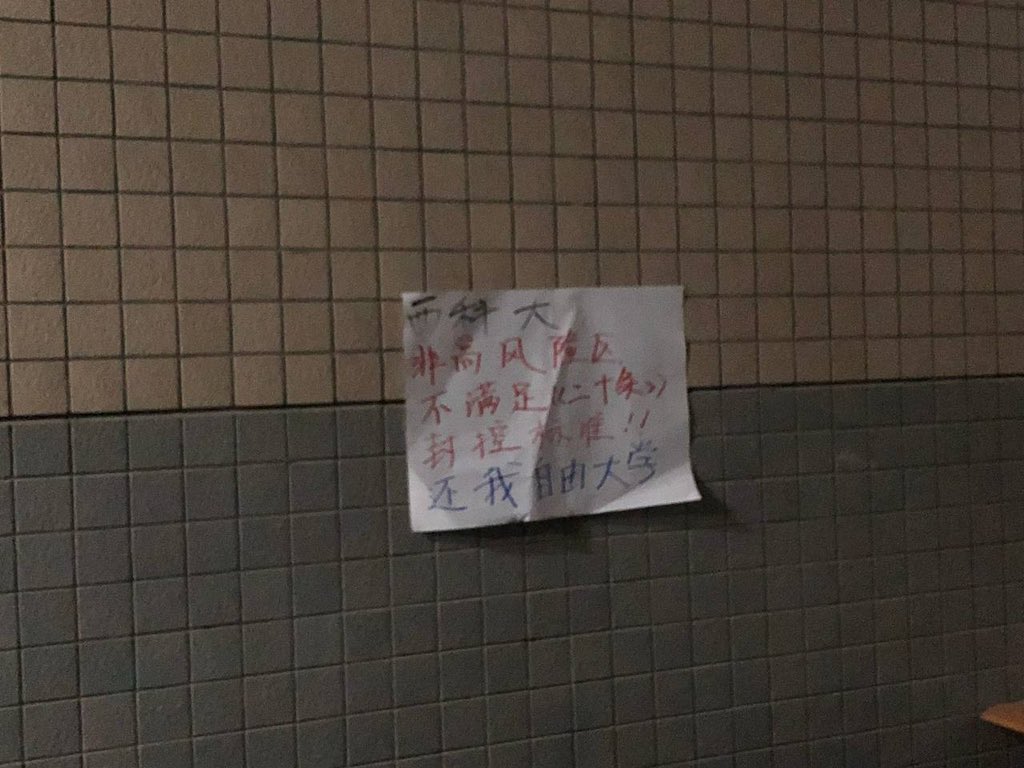 西科大
非高风险区
不满足《二十条》
封控标准!!
还我自由大学